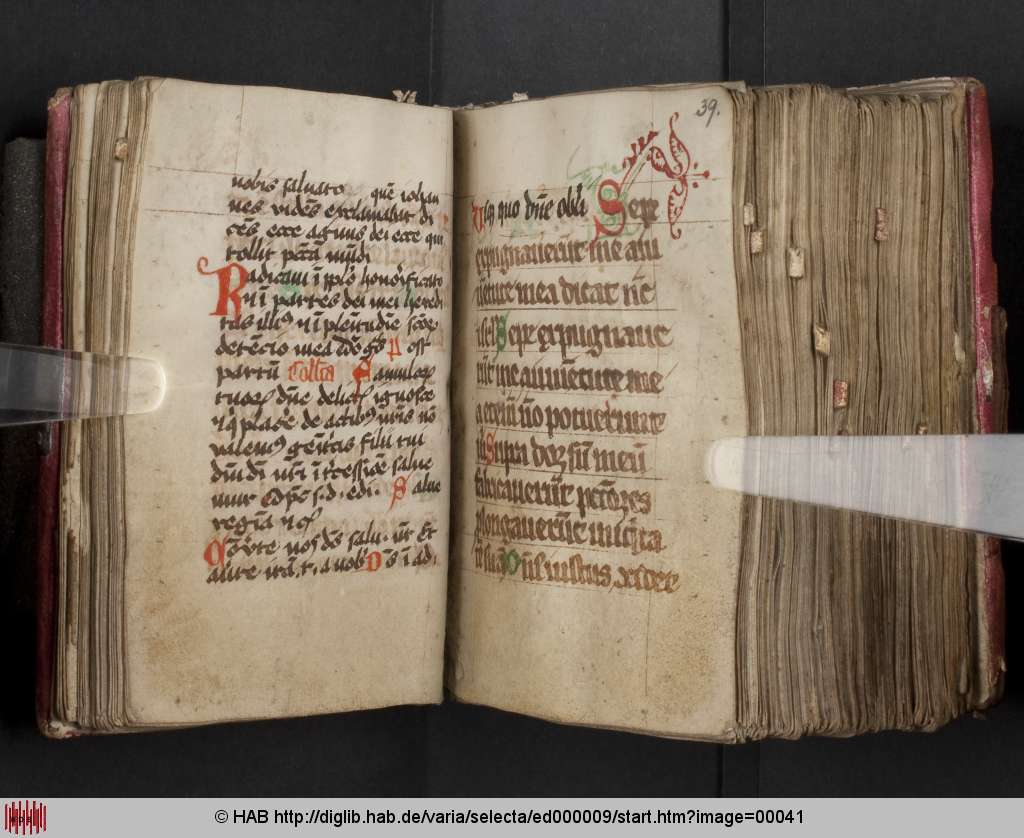 nobis saluato que iohan
nes vides exclamabat di
ces ecce agnus dei ecce qui
tollit pctā mūdi
Radicaui ī pplo honorificato
⁊ ī partes dei mei heredi
tas illiꝰ ⁊ ī plenitudīe scōꝝ
detencio mea P ost
partū Coll̄cta F amuloꝝ
tuoꝝ dn̄e delictꝭ ignosce
placere de actibꝰ nr̄is nō
valemꝰ genitꝭ filii tui
dn̄i dei nr̄i ītercessiōe salue
mur S alue
regīa
Cōu̇te nos dꝰ salu. nr̄ Et
au̇te irā. t. a nob̄ D s ī ad.
39.
Vsq̄ quo dn̄e obl̄i Sepe
expugnauerūt me a iu
uentute mea dicat nūc
isrl̄ Sepe expugnaue
rūt me a iuuētute me
a etenī nō potuerūt m̄
Supra dorsū meū
fabricauerūt pctōres
plongauerūt iniq̄ta
tē suā Dn̄s iustus
© HAB http://diglib.hab.de/varia/selecta/ed000009/start.htm?image=00041